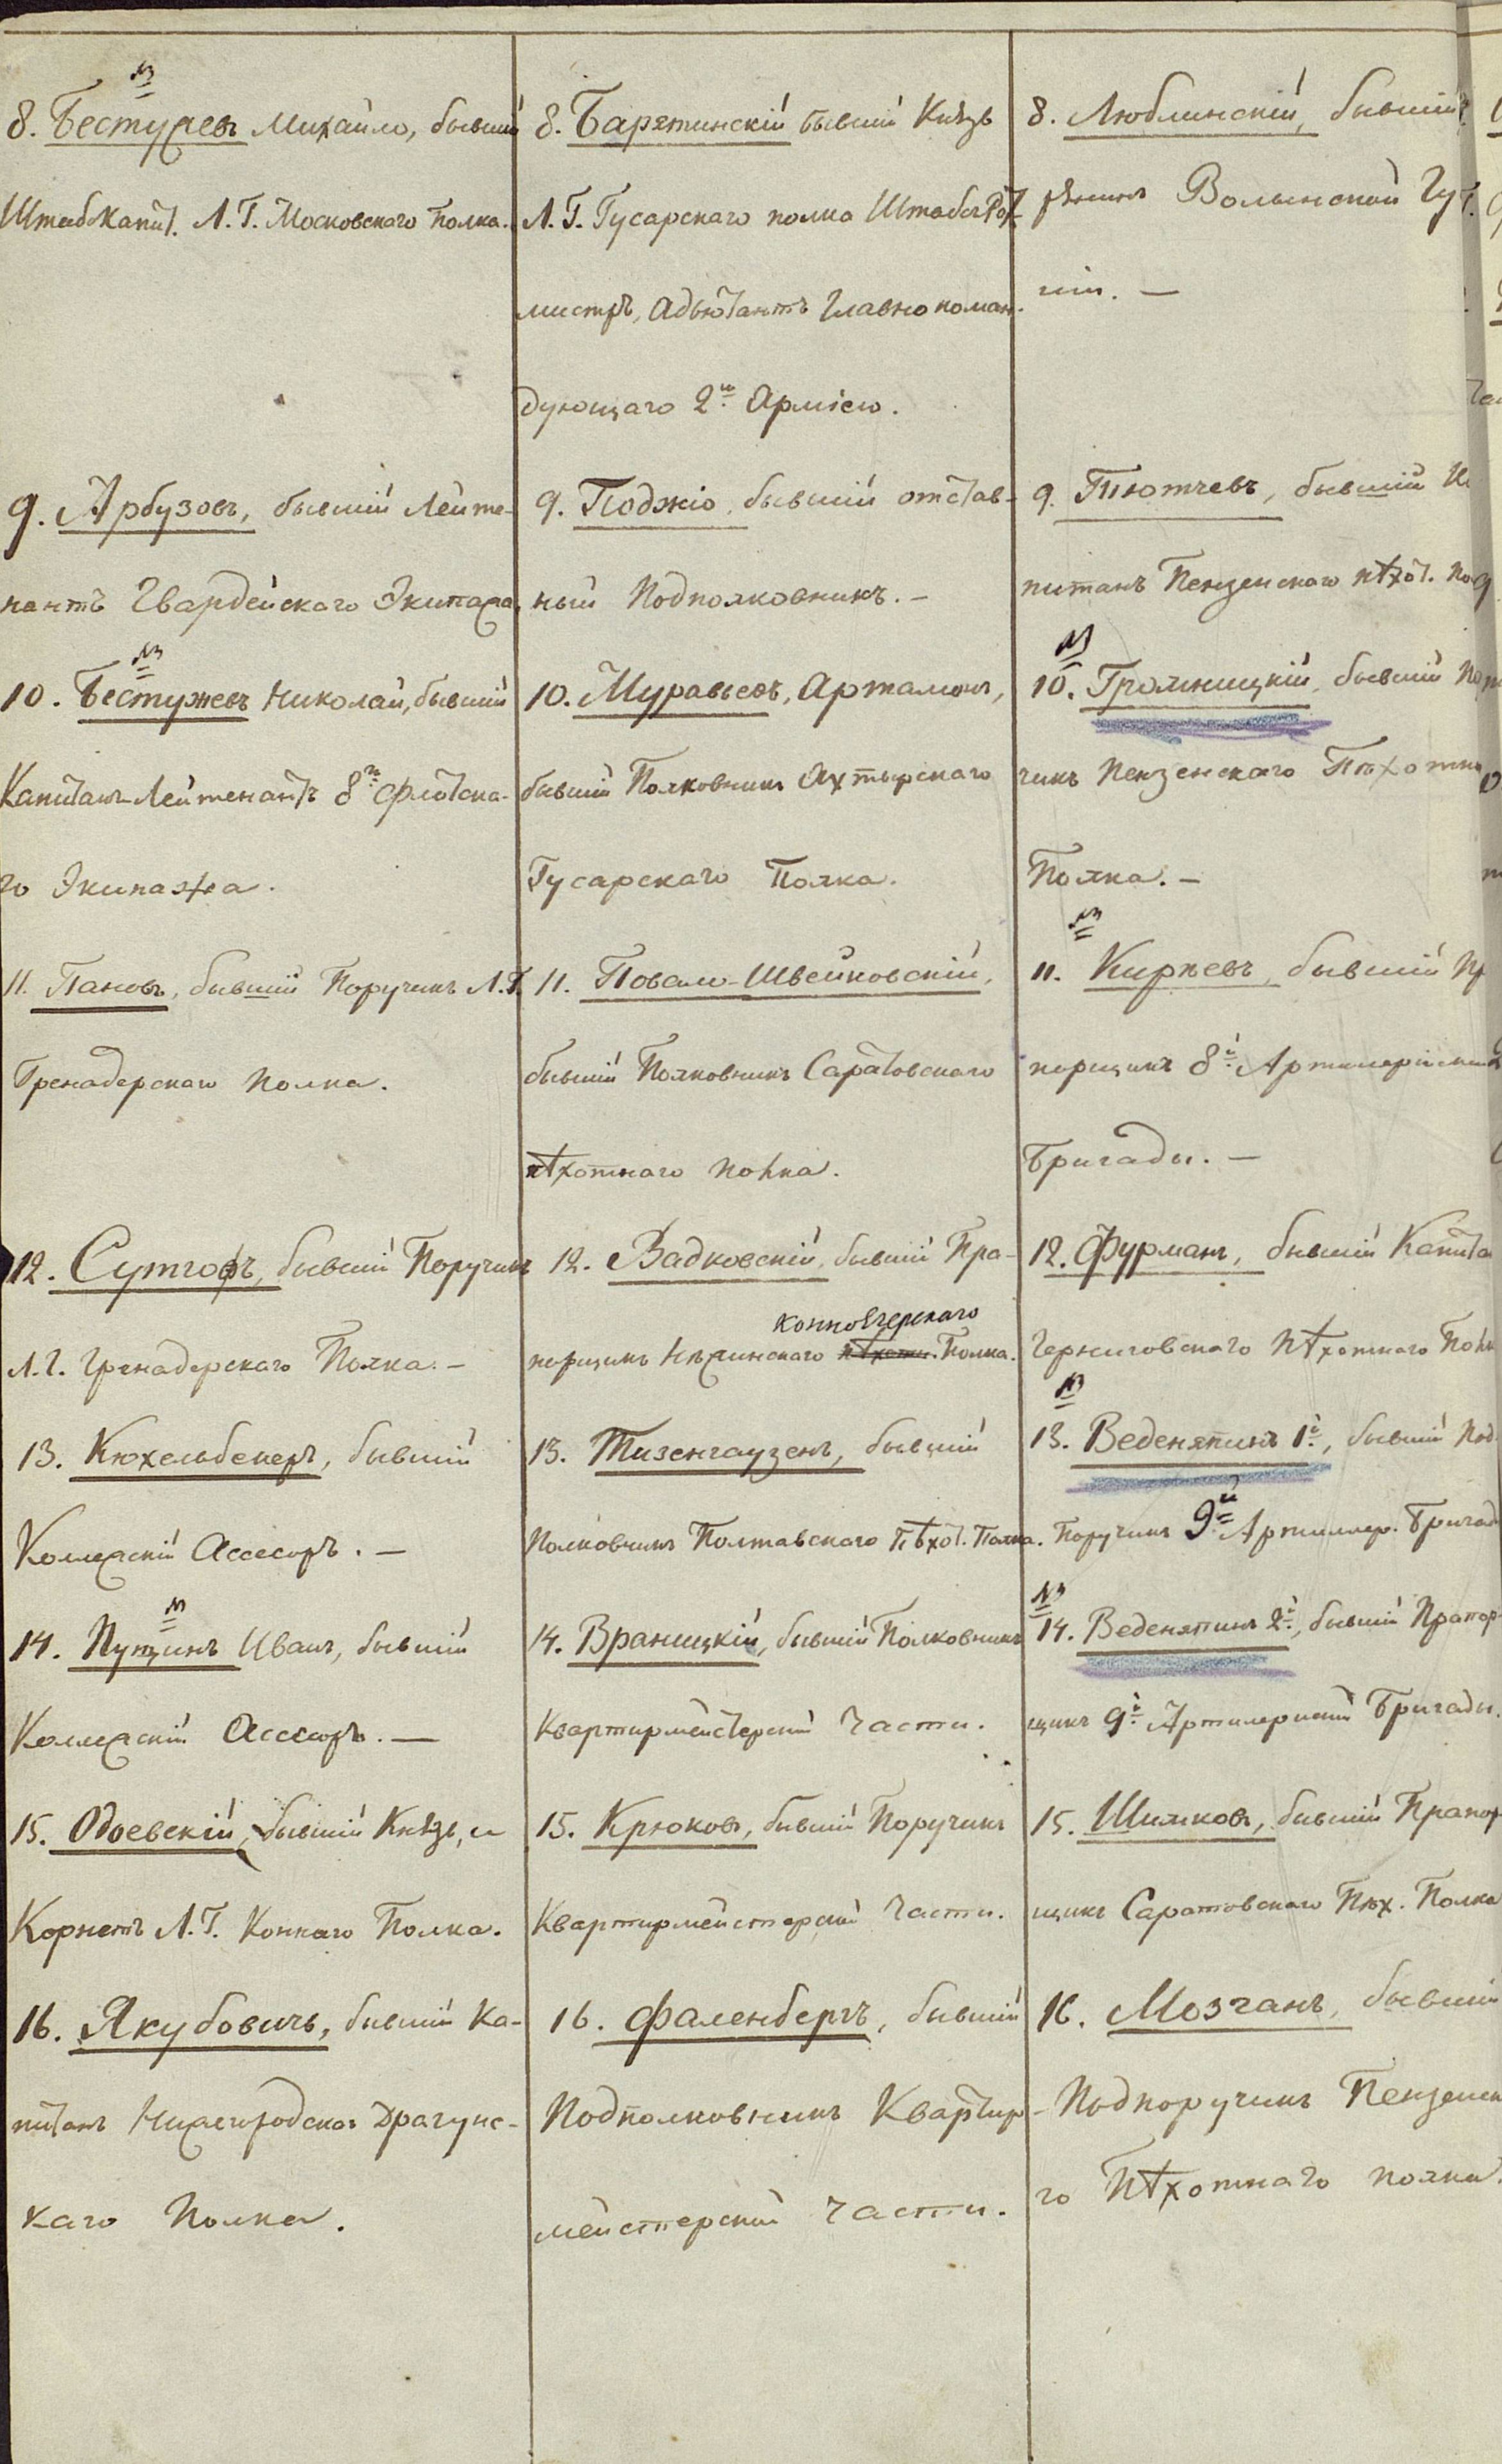 8. Бестужевъ Михайло, бывшій
Штабскапит. Л. Г. Московскаго Полка.
9. Арбузовъ, бывшій Лейте-
нантъ Гвардейскаго Экипажа
10. Бестужевъ Николай, бывшій
Капитанъ-Лейтенантъ 8го Флотска-
го Экипажа.
11. Пановъ, бывшій Поручикъ Л. Г.
Гренадерскаго полка.
12. Сутгофъ, бывшій Поручикъ
Л. Г. Гренадерскаго Полка. —
13. Кюхельбекеръ, бывшій
Коллежскій Ассесоръ. —
14. Пущинъ Иванъ, бывшій
Коллежскій Ассесоръ. —
15. Одоевскій, бывшій Князь, и
Корнетъ Л. Г. Коннаго Полка.
16. Якубовичь, бывшій Ка-
питанъ Нижегородскаго Драгунс-
каго Полка.
8. Барятинскій бывшій Князь
Л. Г. Гусарскаго полка Штабсъ Рот-
мистръ, Адъютантъ Главнокоман-
дующаго 2й Арміею.
9. Поджіо, бывшій отстав-
ный Подполковникъ. —
10. Муравьевъ, Артамонъ,
бывшій Полковникъ Ахтырскаго
Гусарскаго Полка.
11. Повало-Швейковскій,
бывшій Полковникъ Саратовскаго
пѣхотнаго полка.
12. Вадковскій, бывшій Пра-
конноегерскаго
порщикъ Нѣжинскаго пѣхотн. Полка.
13. Тизенгаузенъ, бывшій
Полковникъ Полтавскаго Пѣхот. Полка.
14. Враницкій, бывшій Полковникъ
Квартирмейстерской Части.
15. Крюковъ, бывшій Поручикъ
Квартирмейстерской Части.
16. Фаленбергъ, бывшій
Подполковникъ Квартир-
мейстерской Части.
8. Люблинскій, бывшій
рянинъ Волынской Гу
ніи. —
9. Тютчевъ, бывшій
питанъ Пензенскаго пѣхот. По
10. Громницкій, бывшій По
чикъ Пензенскаго Пѣхотн
Полка. —
11. Кирѣевъ, бывшій Пр
порщикъ 8й Артилерійской
Бригады. —
12. Фурманъ, бывшій Капита
Черниговскаго Пѣхотнаго Полк
13. Веденяпинъ 1й, бывшій Под
Поручикъ 9й Артиллер. Бригад
14. Веденяпинъ 2й, бывшій Прапор-
щикъ 9й Артилерійской Бригады.
15. Шимковъ, бывшій Прапор
щикъ Саратовскаго Пѣх. Полка
16. Мозганъ, бывшій
Подпоручикъ Пензенск
го Пѣхотнаго полка.